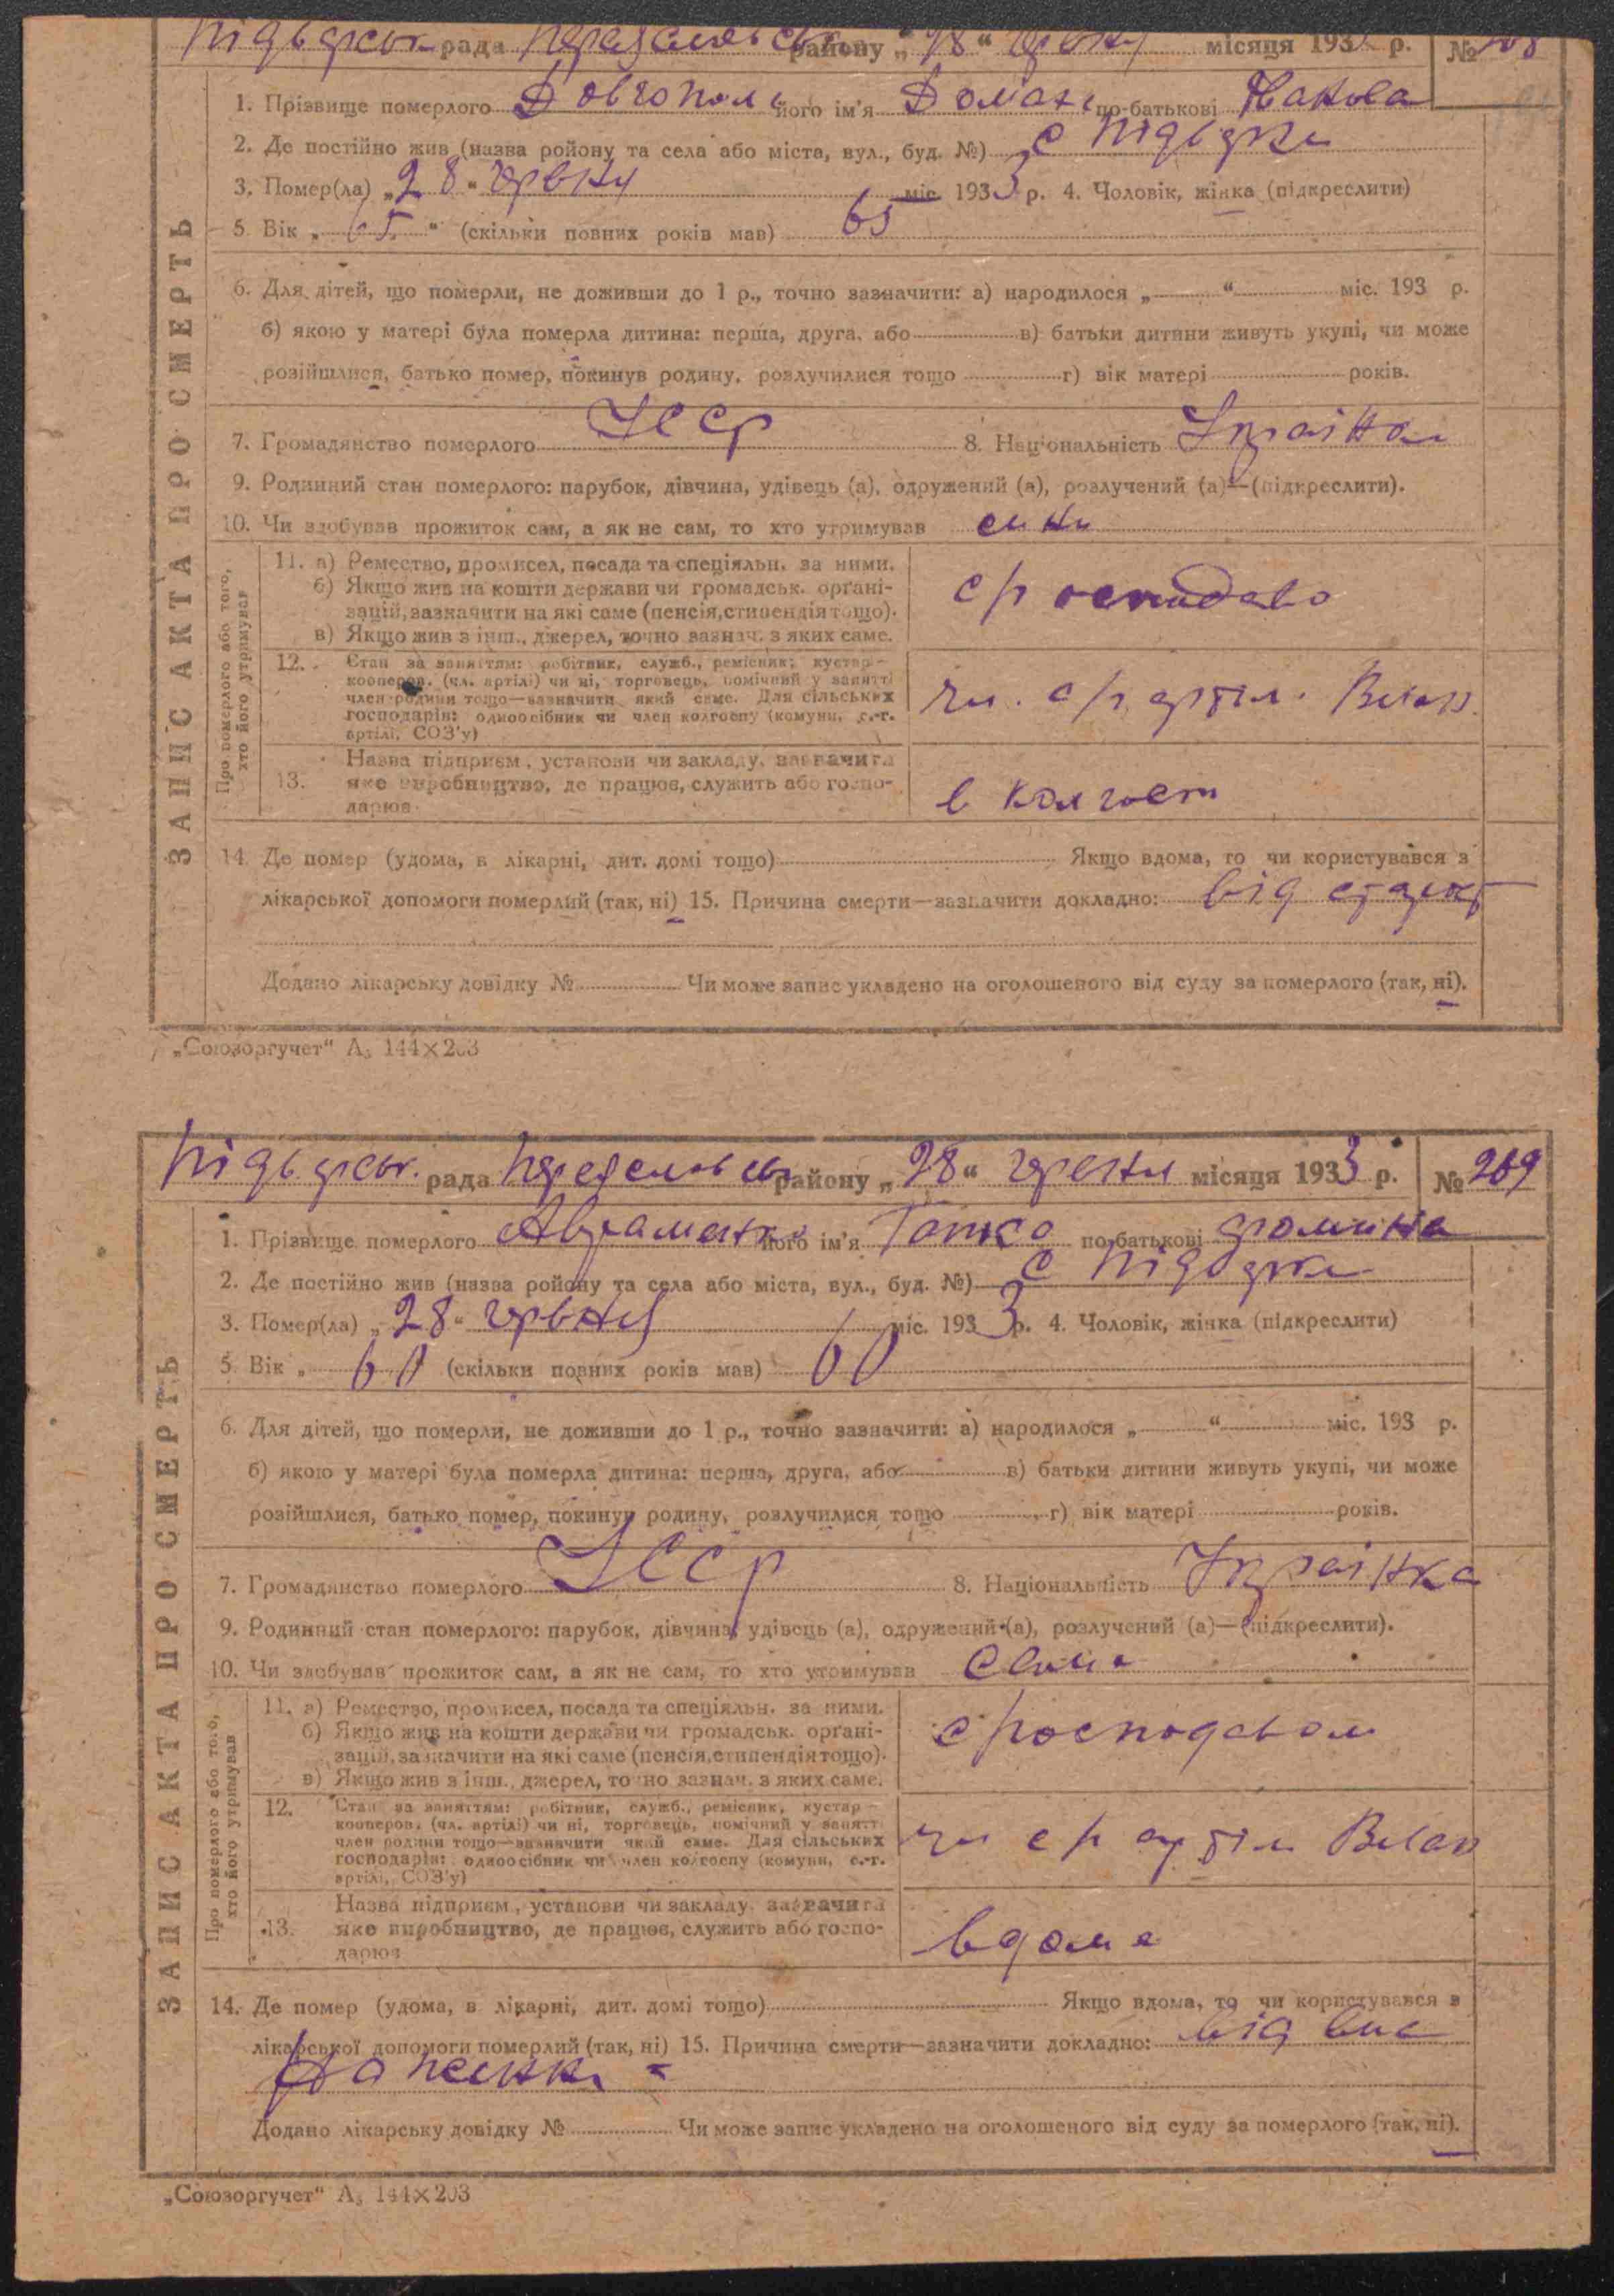 рада району „28“ місяця 193 р. №
1. Прізвище померлого Довгополь його ім'я по-батькові Якова
2. Де постійно жив (назва ройону та села або міста, вул., буд. №) с
3. Помер(ла) „28“ червня міс. 1933 р. 4. Чоловік, жінка (підкреслити)
5. Вік „65“ (скільки повних років мав) 65
6. Для дітей, що померли, не доживши до 1 р., точно зазначити: а) народилося „ “ міс. 193 р.
б) якою у матері була померла дитина: перша, друга, або в) батьки дитини живуть укупі, чи може
розійшлися, батько помер, покинув родину, розлучилися тощо г) вік матері років.
7. Громадянство померлого УССР 8. Національність
9. Родинний стан померлого: парубок, дівчина, удівець (а), одружений (а), розлучений (а)—(підкреслити).
10. Чи здобував прожиток сам, а як не сам, то хто утримував сини
ЗАПИС АКТА ПРО СМЕРТЬ
Про померлого або того, хто його утримував
11. а) Ремество, промисел, посада та спеціяльн. за ними.
б) Якщо жив на кошти держави чи громадськ. орґані-
зацій, зазначити на які саме (пенсія, стипендія тощо).
в) Якщо жив з інш., джерел, точно зазнач. з яких саме.
12. Стан за заняттям: робітник, служб., ремісник, кустар—
кооперов. (чл. артілі) чи ні, торговець, помічний у занятті
член родини тощо—зазначити який саме. Для сільських
господарів: одноосібник чи член колгоспу (комуни, с.-г.
артілі, СОЗ'у)
чл. с/г артіл.
13. Назва підприєм., установи чи закладу, зазначити
яке виробництво, де працює, служить або госпо-
дарює
в колгосп
14. Де помер (удома, в лікарні, дит. домі тощо) Якщо вдома, то чи користувався з
лікарської допомоги померлий (так, ні) 15. Причина смерти—зазначити докладно: від
Додано лікарську довідку № Чи може запис укладено на оголошеного від суду за померлого (так, ні).
„Союзоргучет“ А₅ 144×203
рада району „28“ червня місяця 1933 р. № 269
1. Прізвище померлого Авраменко його ім'я по-батькові
2. Де постійно жив (назва ройону та села або міста, вул., буд. №) с
3. Помер(ла) „28“ червня міс. 1933 р. 4. Чоловік, жінка (підкреслити)
5. Вік „60 (скільки повних років мав) 60
6. Для дітей, що померли, не доживши до 1 р., точно зазначити: а) народилося „ “ міс. 193 р.
б) якою у матері була померла дитина: перша, друга, або в) батьки дитини живуть укупі, чи може
розійшлися, батько помер, покинув родину, розлучилися тощо г) вік матері років.
7. Громадянство померлого УССР 8. Національність Українка
9. Родинний стан померлого: парубок, дівчина, удівець (а), одружений (а), розлучений (а)—(підкреслити).
10. Чи здобував прожиток сам, а як не сам, то хто утримував сама
ЗАПИС АКТА ПРО СМЕРТЬ
Про померлого або того, хто його утримував
11. а) Ремество, промисел, посада та спеціяльн. за ними.
б) Якщо жив на кошти держави чи громадськ. орґані-
зацій, зазначити на які саме (пенсія, стипендія тощо).
в) Якщо жив з інш., джерел, точно зазнач. з яких саме.
12. Стан за заняттям: робітник, служб., ремісник, кустар—
кооперов. (чл. артілі) чи ні, торговець, помічний у занятті
член родини тощо—зазначити який саме. Для сільських
господарів: одноосібник чи член колгоспу (комуни, с.-г.
артілі, СОЗ'у)
чл с/г артіл
13. Назва підприєм., установи чи закладу, зазначити
яке виробництво, де працює, служить або госпо-
дарює
вдома
14. Де помер (удома, в лікарні, дит. домі тощо) Якщо вдома, то чи користувався з
лікарської допомоги померлий (так, ні) 15. Причина смерти—зазначити докладно: від вис
наження
Додано лікарську довідку № Чи може запис укладено на оголошеного від суду за померлого (так, ні).
„Союзоргучет“ А₅ 144×203